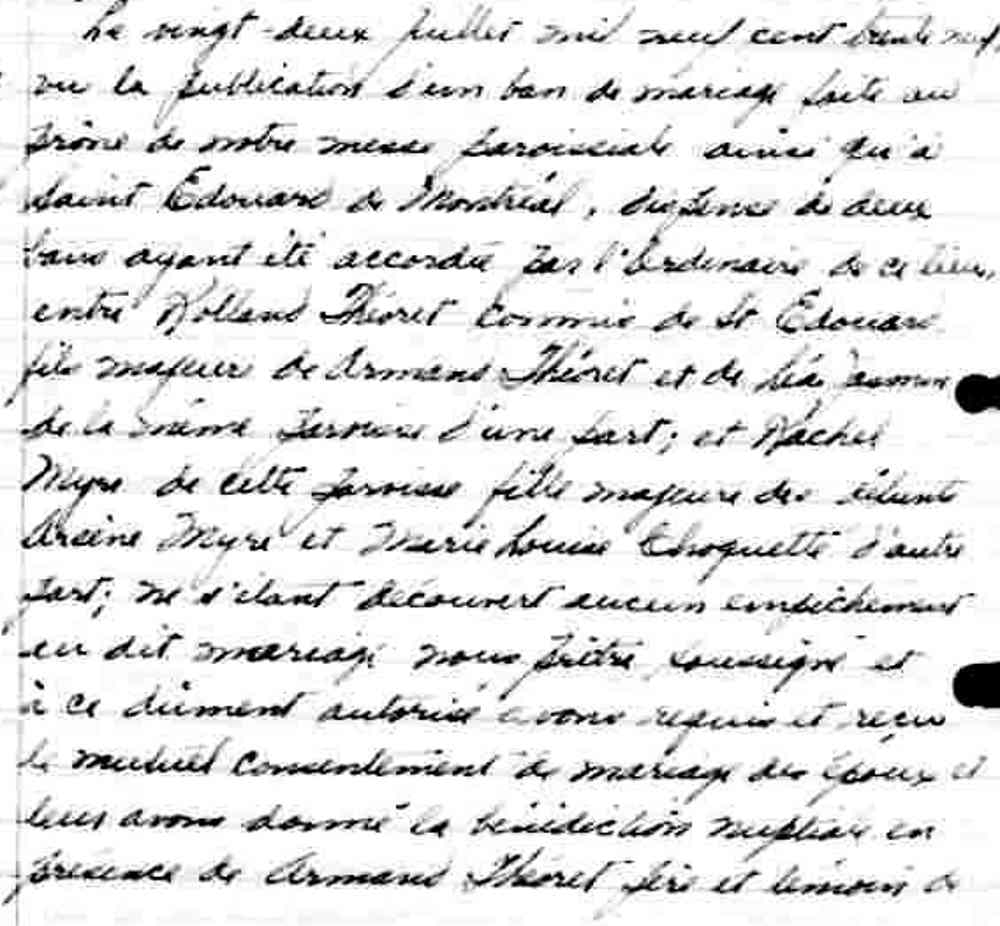 Le vingt-deux juillet mil neuf cent trente neuf,
vu la publication d'un ban de mariage faite au
prône de notre messe paroissiale ainsi qu'à
Saint Edouard de Montréal, dispense de deux
bans ayant été accordée par l'Ordinaire de ce lieu,
entre Rolland Théoret commis de St Edouard
fils majeur de Armand Théoret et de Léa Jasmin
de la même paroisse d'une part; et Rachel
Myre de cette paroisse fille majeure des
Arsène Myre et Marie Louise Choquette d'autre
part; ne s'étant découvert aucun empêchement
au dit mariage nous prêtre soussigné et
à ce dûment autorisé avons requis et reçu
le mutuel consentement de mariage des époux et
leur avons donné la bénédiction nuptiale en
présence de Armand Théoret père et témoin de